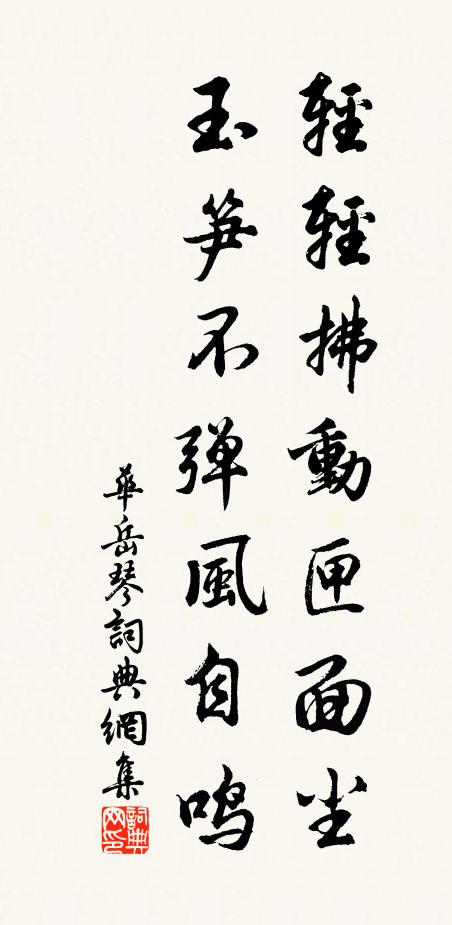 輕輕拂動匣面尘
玉笋不弹風自鸣
華岳琴詞典網集
詞典网印